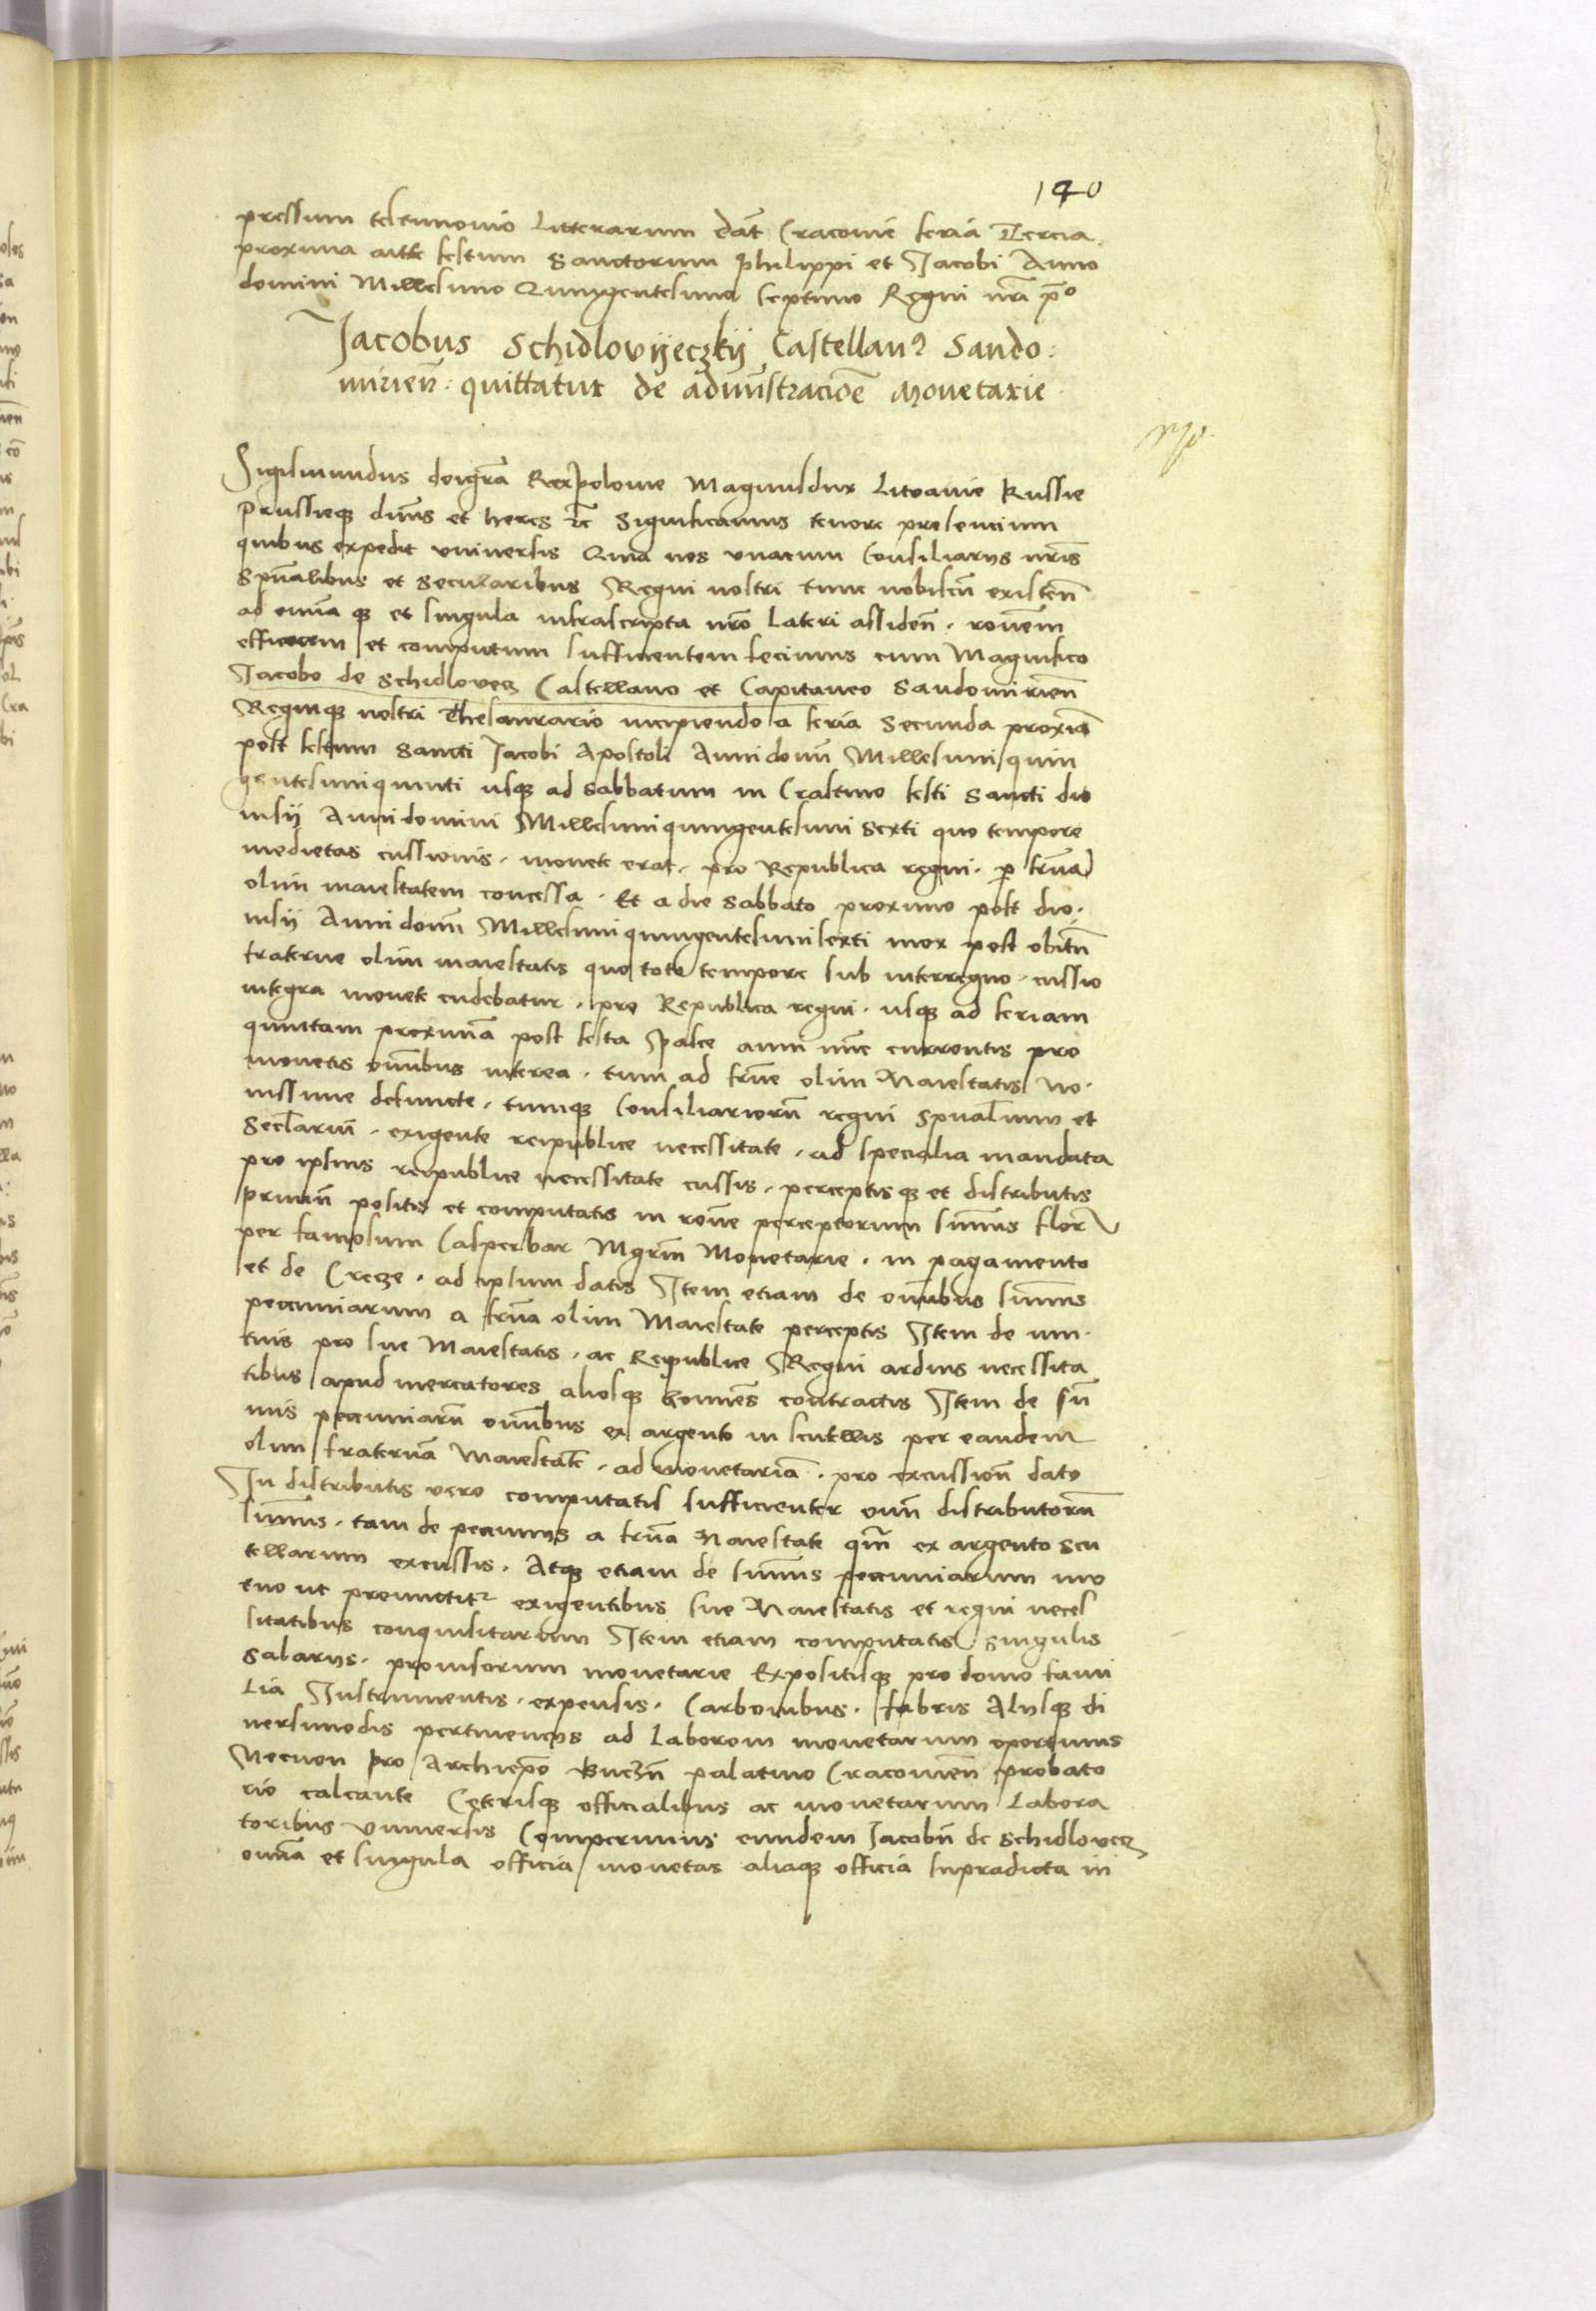 140
pressum testimonio litterarum dat̄ Cracovie feria Tercia
proxima ante festum Sanctorum philippi et Jacobi Anno
domini Millesimo Quingentesimo septimo Regni nr̄i pº
Jacobus Schidlovijeczkij Castellanꝰ Sando:
mirien̄: quittatur de admīstracioē monetarie
Sigismundus dei gr̄a Rex polonie Magnus dux Litvanie Russie
prussieqꝫ dn̄us et heres ꝛc̄ Significamus tenore presencium
quibus expedit universis Quia nos unacum Consiliarijs nr̄is
Spūalibus et Secularibus Regni nostri tunc nobiscū existen̄
ad omīa qꝫ et singula infrascripta nr̄o lateri assiden̄. rōnem
efficacem et computum sufficientem fecimus cum Magnifico
Jacobo de Schidlovecz Castellano et Capitaneo Sandomirien̄
Regniqꝫ nostri Thesaurario incipiendo a feria Secunda proxīa
post festum Sancti Jacobi Apostoli Anni domī Millesimi quin
gentesimi quinti usqꝫ ad Sabbatum in Crastino festi Sancti dio
nisij Anni domini Millesimi quingentesimi Sexti quo tempore
medietas cussionis. monete erat. pro Republica regni. p̱ fr̄nā
olim maiestatem concessa. Et a die Sabbato proximo post dio.
nisij Anni domī Millesimi quingentesimi sexti mox post obitū
fraterne olim maiestatis quo toto tempore sub interregno. cussio
integra monete cudebatur. pro Republica regni. usqꝫ ad feriam
quintam proximā post festa pasce anni nūc currentis pro
monetis omībus interea. tum ad fr̄ne olim Maiestatis no.
vissime defuncte. tumqꝫ Consiliariorū regni Spūalium et
Seclariū. exigente reipublice necessitate. ad specialia mandata
pro ipsius reipublice necessitate cussis. perceptisqꝫ et distributis
primū positis et computatis in rōne perceptorum sum̄is flor
per famosum Casper bar Mgrm̄ Monetarie. in pagamento
et de Crecze. ad ipsum datis Item etiam de omībus sum̄is
pecuniarum a fr̄na olim Maiestate perceptis Item de mu.
tuis pro sue Maiestatis. ac Reipublice Regni arduis necessita
tibus apud mercatores aliosqꝫ homīes contractis Item de sū
mis pecuniarū omībus ex argento in scutellis per eandem
olim fraternā Maiestatē. ad monetariā. pro excussioē dato
In distributis vero computatis sufficienter omī distributorū
sum̄is. tam de pecunijs a fr̄na Maiestate qm̄ ex argento scu
tellarum excussis. Atqꝫ etiam de sum̄is pecuniarum mu
tuo ut premittitꝛ exigentibus sue Maiestatis et regni neces
sitatibus conquisitarum Item etiam computatis singulis
Salarijs. provisorum monetarie Expositisqꝫ pro domo fami
lia Instrumentis. expensis. Carbonibus. fabris Alijsqꝫ di
versimodis pertinencijs ad laborem monetarum oportunis
Necnon pro Archiepō Gneznn̄ palatino Cracovien̄ probato
rio calcante Ceterisqꝫ officialibus ac monetarum labora
toribus universis Comperimus eundem Jacobū de Schidlovecz
omīa et singula officia monetas aliaqꝫ officia supradicta in